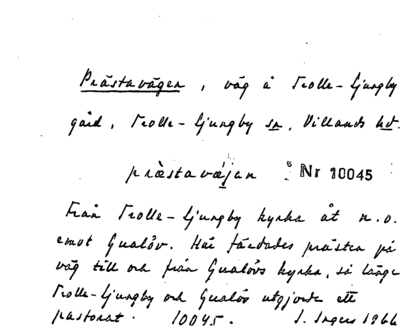 Prästavägen, väg å Trolle-Ljungby
gård, Trolle-Ljungby sn, Villands hd.
prästavæjan Nr 10045
Från Trolle-Ljungby kyrka åt n.o.
emot Gualöv. Här färdades prästen på
väg till och från Gualövs kyrka, så länge
Trolle-Ljungby och Gualöv utgjorde ett
pastorat. 10045. I. Ingers 1966